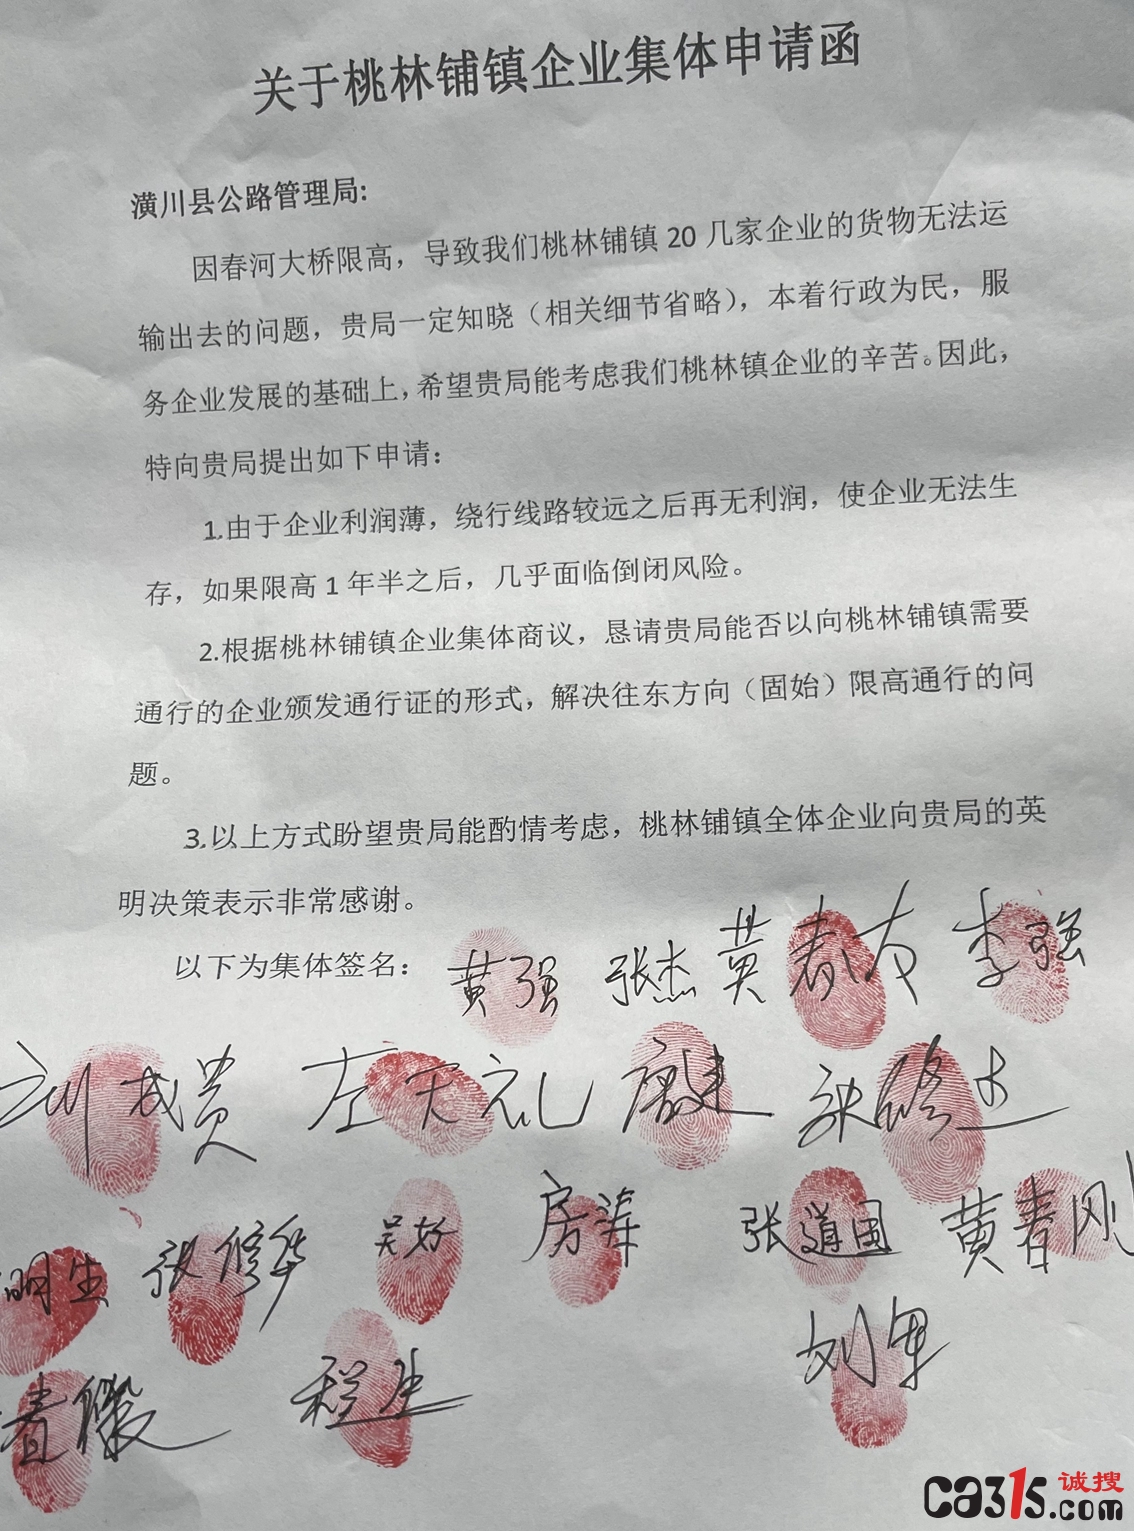 关于桃林铺镇企业集体申请函
潢川县公路管理局:
因春河大桥限高，导致我们桃林铺镇 20 几家企业的货物无法运
输出去的问题，贵局一定知晓（相关细节省略），本着行政为民，服
务企业发展的基础上，希望贵局能考虑我们桃林镇企业的辛苦。因此，
特向贵局提出如下申请：
1.由于企业利润薄，绕行线路较远之后再无利润，使企业无法生
存，如果限高 1 年半之后，几乎面临倒闭风险。
2.根据桃林铺镇企业集体商议，恳请贵局能否以向桃林铺镇需要
通行的企业颁发通行证的形式，解决往东方向（固始）限高通行的问
题。
3.以上方式盼望贵局能酌情考虑，桃林铺镇全体企业向贵局的英
明决策表示非常感谢。
以下为集体签名： 黄强 张杰 黄春友 李强
刘成贵 左天礼 唐建 张修志
明生 张修华 吴好 房涛 张道国 黄春刚
刘军
春 程生
ca315.com 诚搜